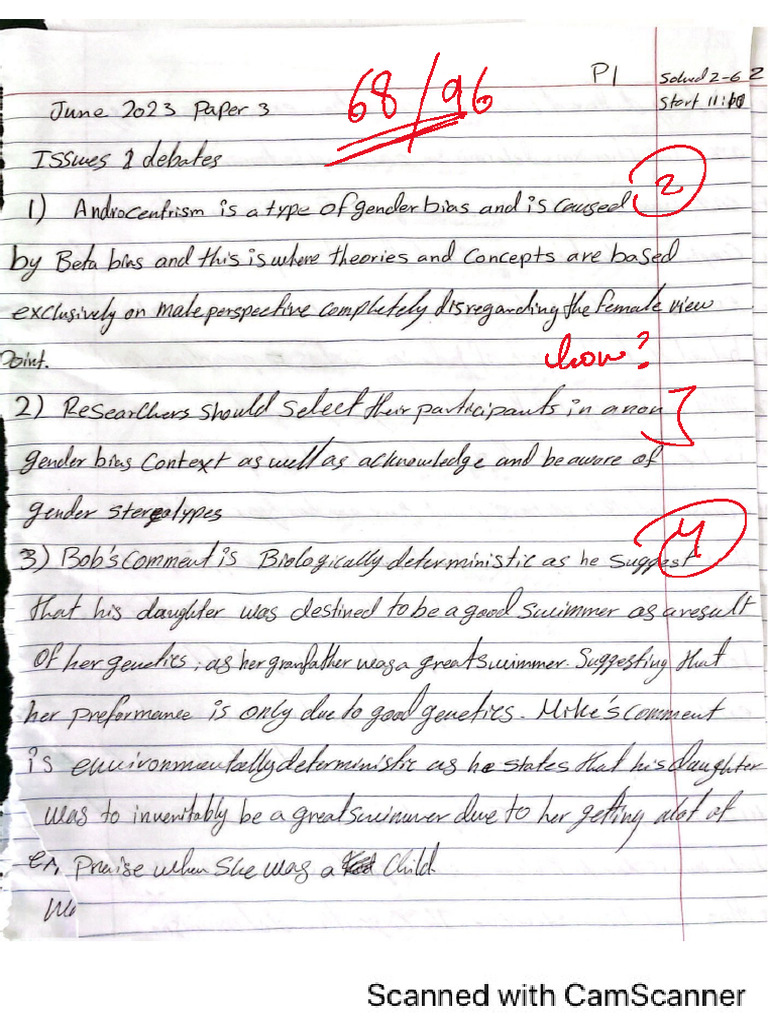 P1
Solved 2-6 2
Start 11:10
June 2023 Paper 3
68/96
Issues & debates
2
1) Androcentrism is a type of gender bias and is caused
by Beta bias and this is where theories and concepts are based
exclusively on male perspective completely disregarding the female view
Point.
how?
2) Researchers should select their participants in a non
gender bias context as well as acknowledge and be aware of
gender stereotypes
4
3) Bob's comment is Biologically deterministic as he suggest
that his daughter was destined to be a good swimmer as a result
of her genetics, as her granfather was a great swimmer. Suggesting that
her preformance is only due to good genetics. Mike's comment
is environmentally deterministic as he states that his daughter
was to invenitably be a great swimmer due to her getting alot of
Praise when she was a Child
Scanned with CamScanner